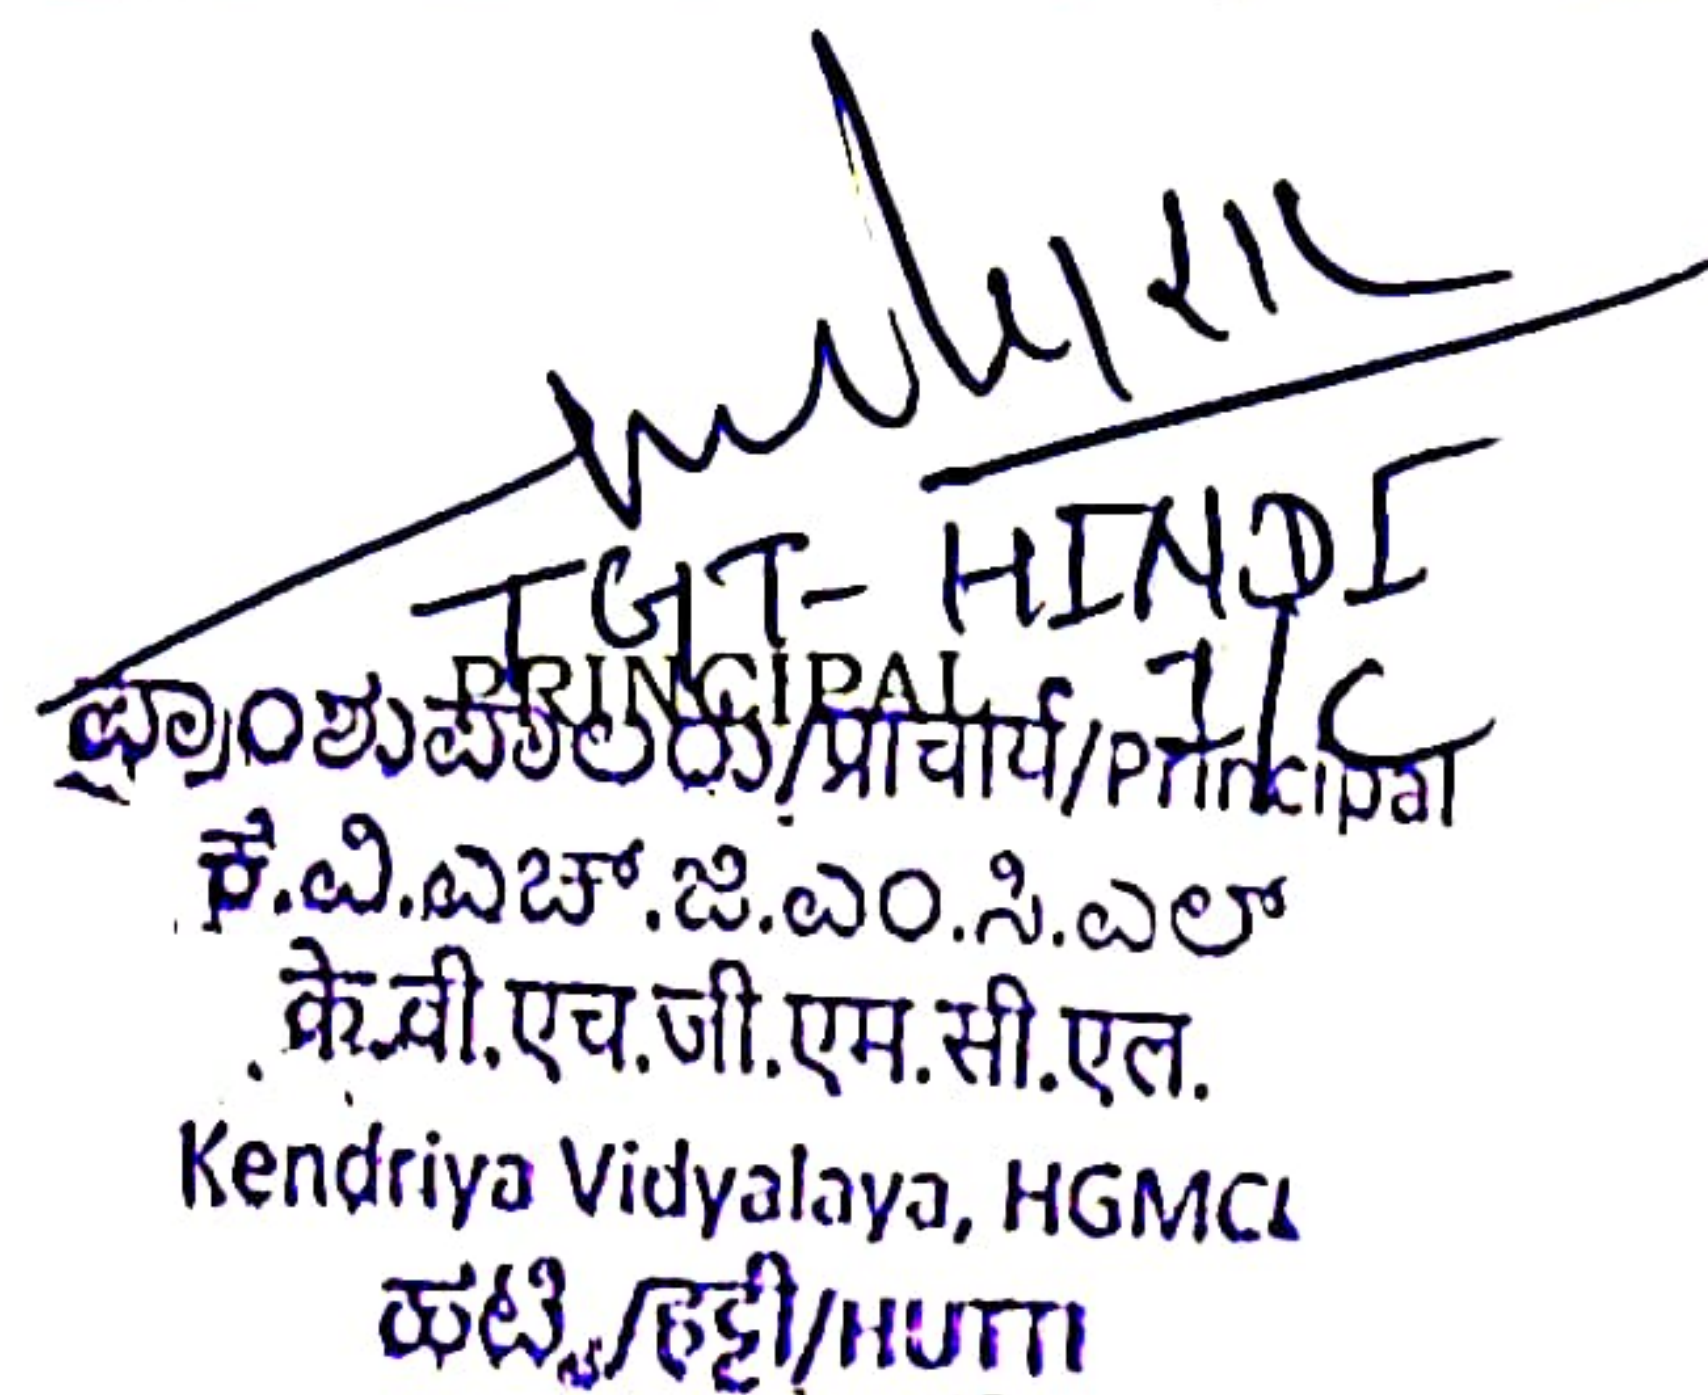 TGT- HINDI
I/C
PRINCIPAL
ಪ್ರಾಂಶುಪಾಲರು/प्राचार्य/Principal
ಕೆ.ವಿ.ಎಚ್.ಜಿ.ಎಂ.ಸಿ.ಎಲ್
के.वी.एच.जी.एम.सी.एल.
Kendriya Vidyalaya, HGMCL
ಹಟ್ಟಿ/हट्टी/HUTTI